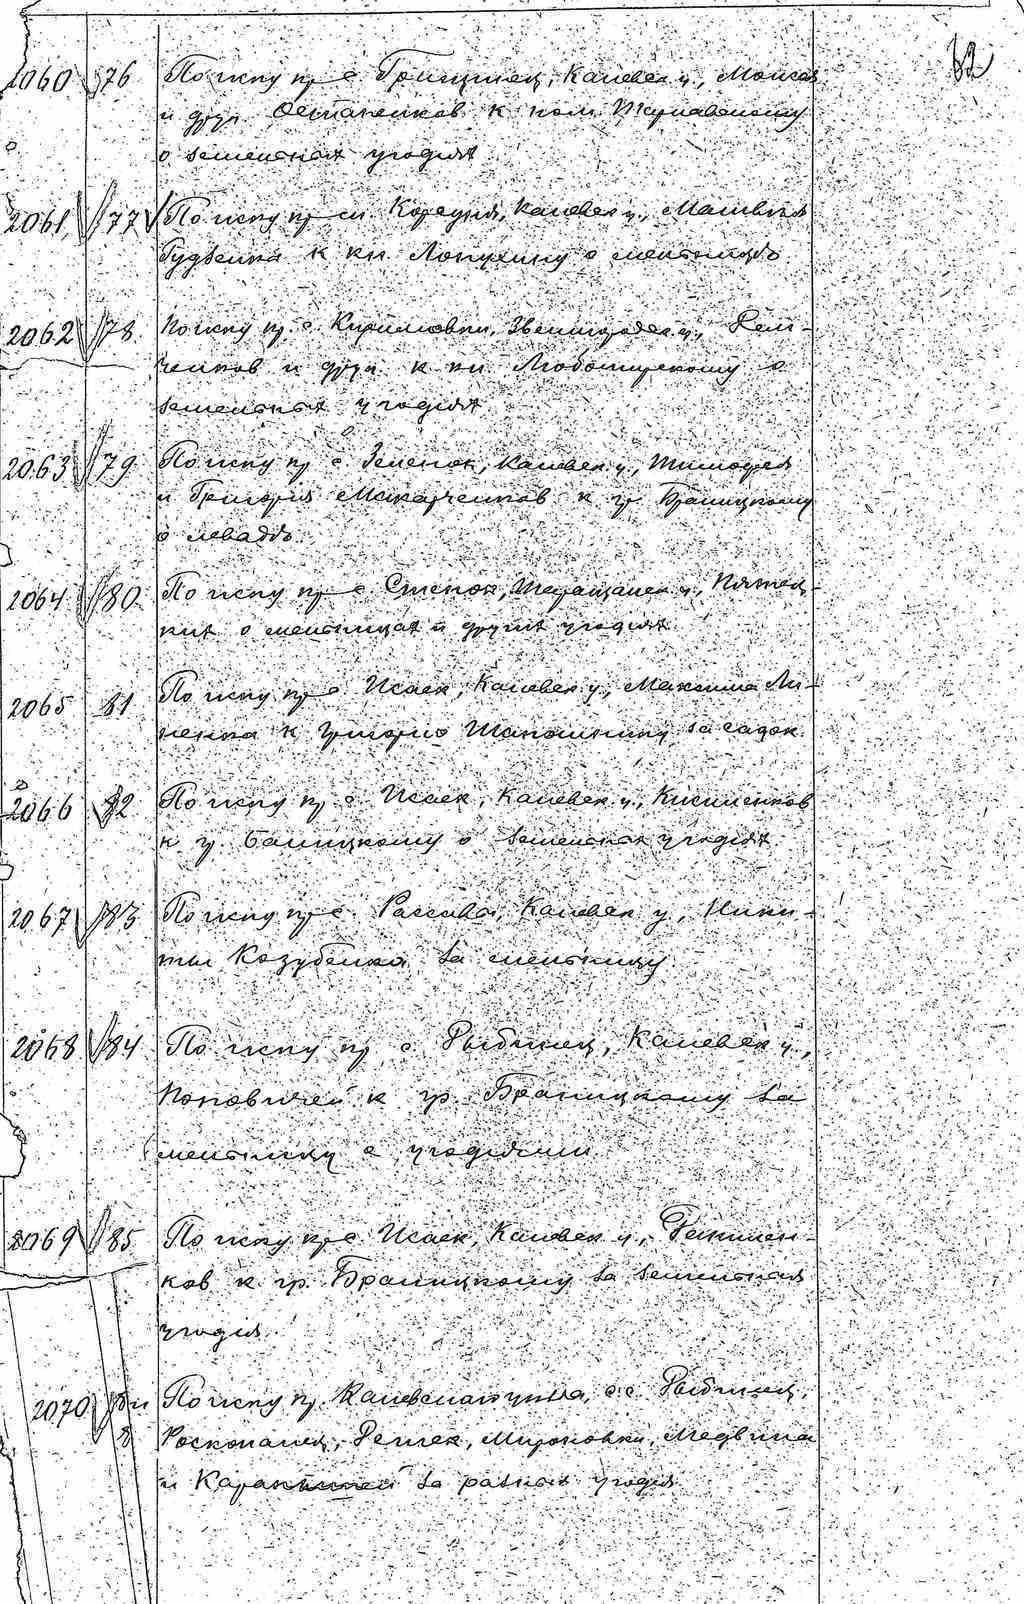 82
2060 76 По иску кр. с. Грищинец, Каневск. у., Моисея
и друг. Остапенков к пом. Трипольскому
о земельных угодіях
2061 77 По иску кр. м. Корсуня, Каневск. у., Матвѣя
Гудзенка к кн. Лопухину о мельницѣ
2062 78 По иску кр. с. Кириловки, Звенигородск. у.,
ченков и друг. к кн. Любомирскому о
земельных угодіях
2063 79 По иску кр. с. Зеленок, Каневск. у., Тимофея
и Григорія Макарченков к гр. Браницкому
о левадѣ.
2064 80 По иску кр. с. Степок, Таращанск. у.,
ких о мельницах и других угодіях
2065 81 По иску кр. с. Исаек, Каневск. у., Максима Ли-
ненка к Григорію Шапошнику за садок.
2066 82 По иску кр. с. Исаек, Каневск. у., Кисиленков
к гр. Браницкому о земельных угодіях
2067 83 По иску кр. с. Россавы, Каневск. у., Ники-
ты Козубенка за мельницу
2068 84 По иску кр. с. Рыбинец, Каневск. у.,
Поповичей к гр. Браницкому за
мельницу с угодіями
2069 85 По иску кр. с. Исаек, Каневск. у.,
ков к гр. Браницкому за земельныя
угодія.
2070 По иску кр. Каневскаго уѣзда, с.с. Рыбинец,
Роскопанец, Мироновки, Медвина
и за разныя угодія